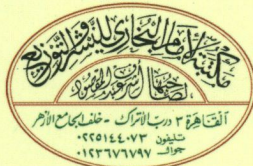 مكتبة الإمام البخاري للنشر والتوزيع
لصاحبها أسعد عبد المقصود
القاهرة ٣ درب الأتراك - خلف الجامع الأزهر
تليفون ٠٢٢٥١٤٤٠٧٣
جوال ٠١٢٣٦٧٦٧٩٧